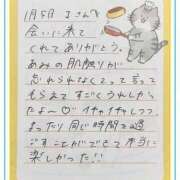 1月5日 Iさんへ
会いに来て
くれてありがとう。
あみの肌触りが
忘れられなくってって言って
もらえてすごくうれしかっ
たよ〜♡イチャイチャしつつ
まったり同じ時間を過
ごすことができて本当に
楽しかった!!